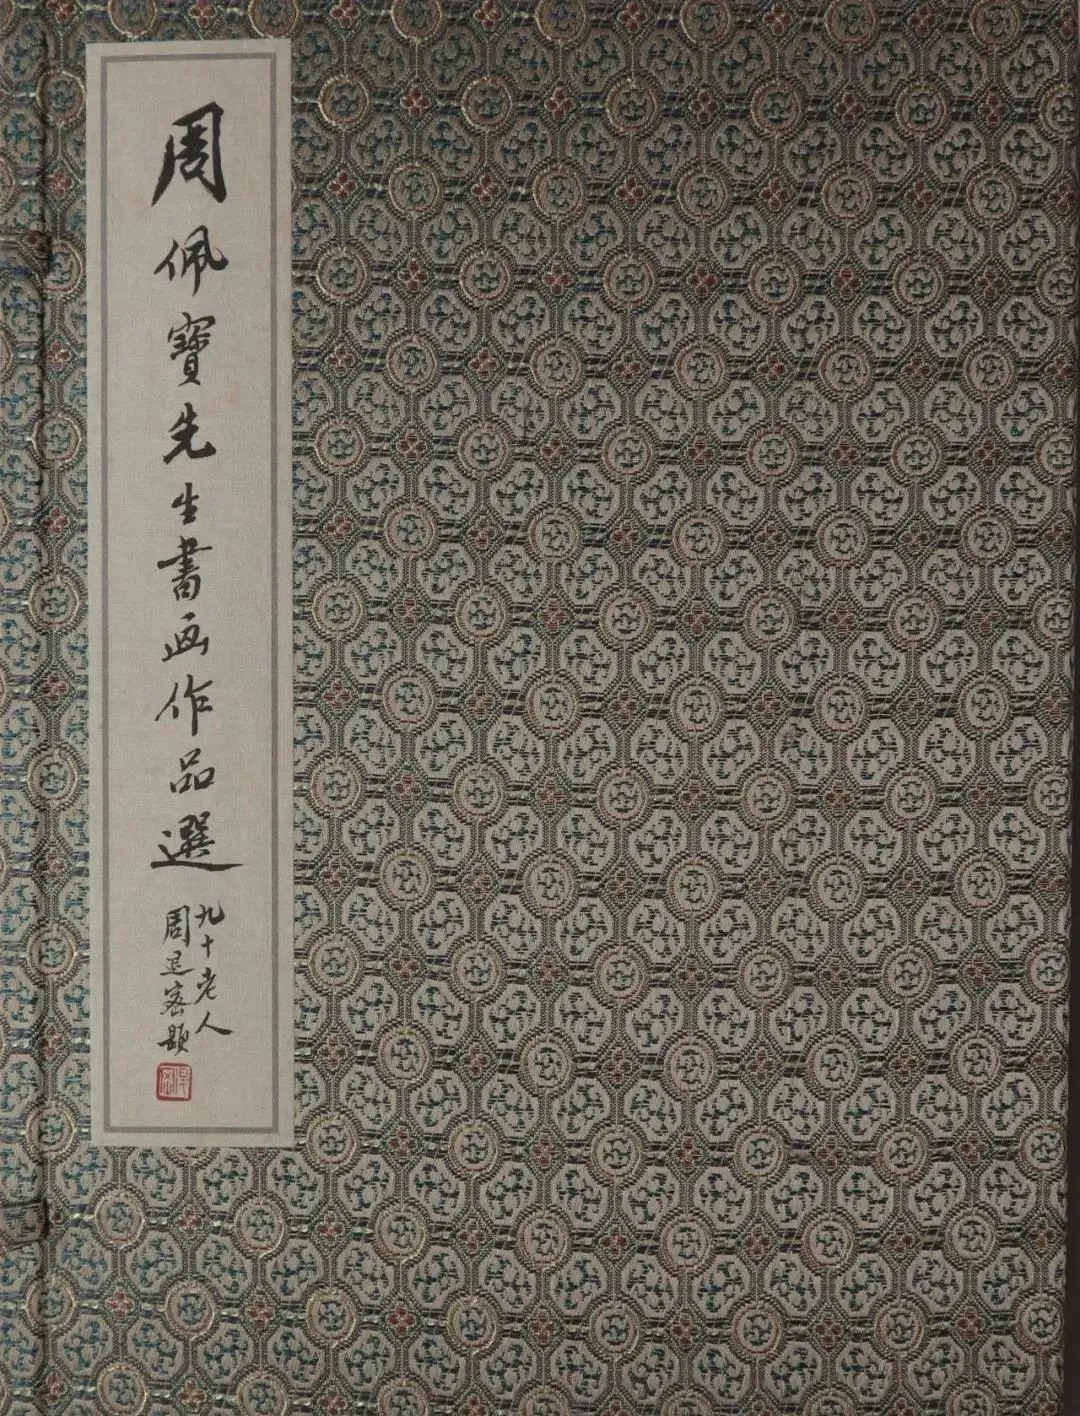 周佩寶先生書画作品選
九十老人
周退密題